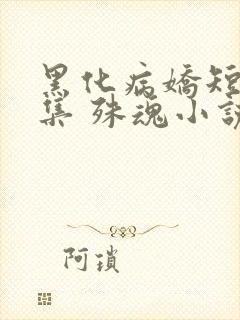 黑化病嬌短
集 殊魂小說
阿瑣